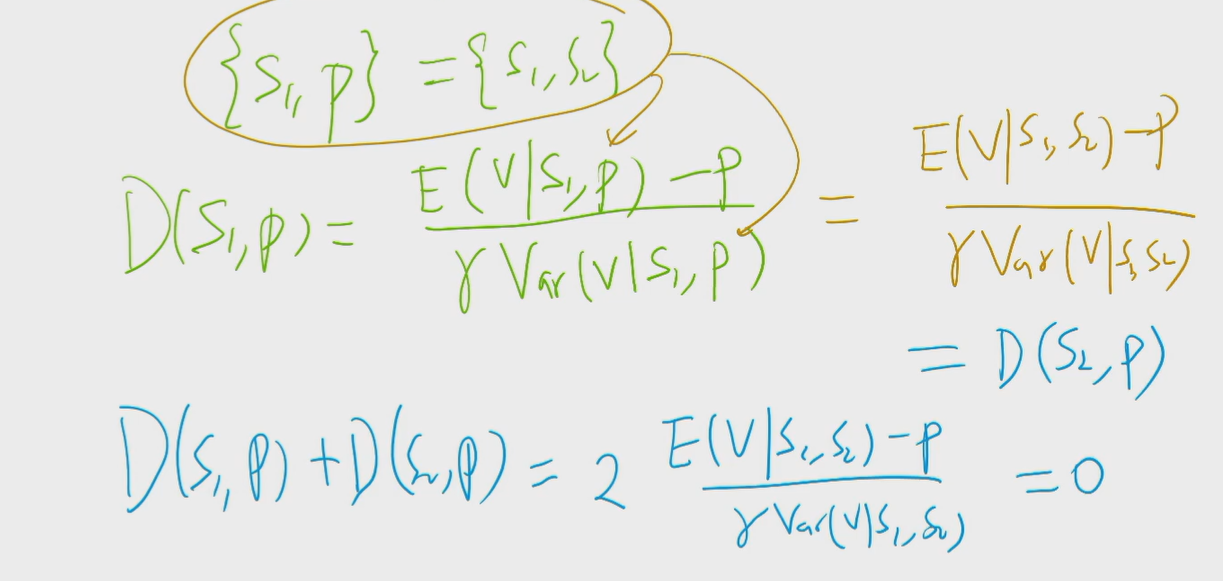 {S₁, P} = {S₁, S₂}
D(S₁, P) = E(V|S₁, P) − P / γ Var(V|S₁, P) = E(V|S₁, S₂) − P / γ Var(V|S₁, S₂)
= D(S₂, P)
D(S₁, P) + D(S₂, P) = 2 E(V|S₁, S₂) − P / γ Var(V|S₁, S₂) = 0